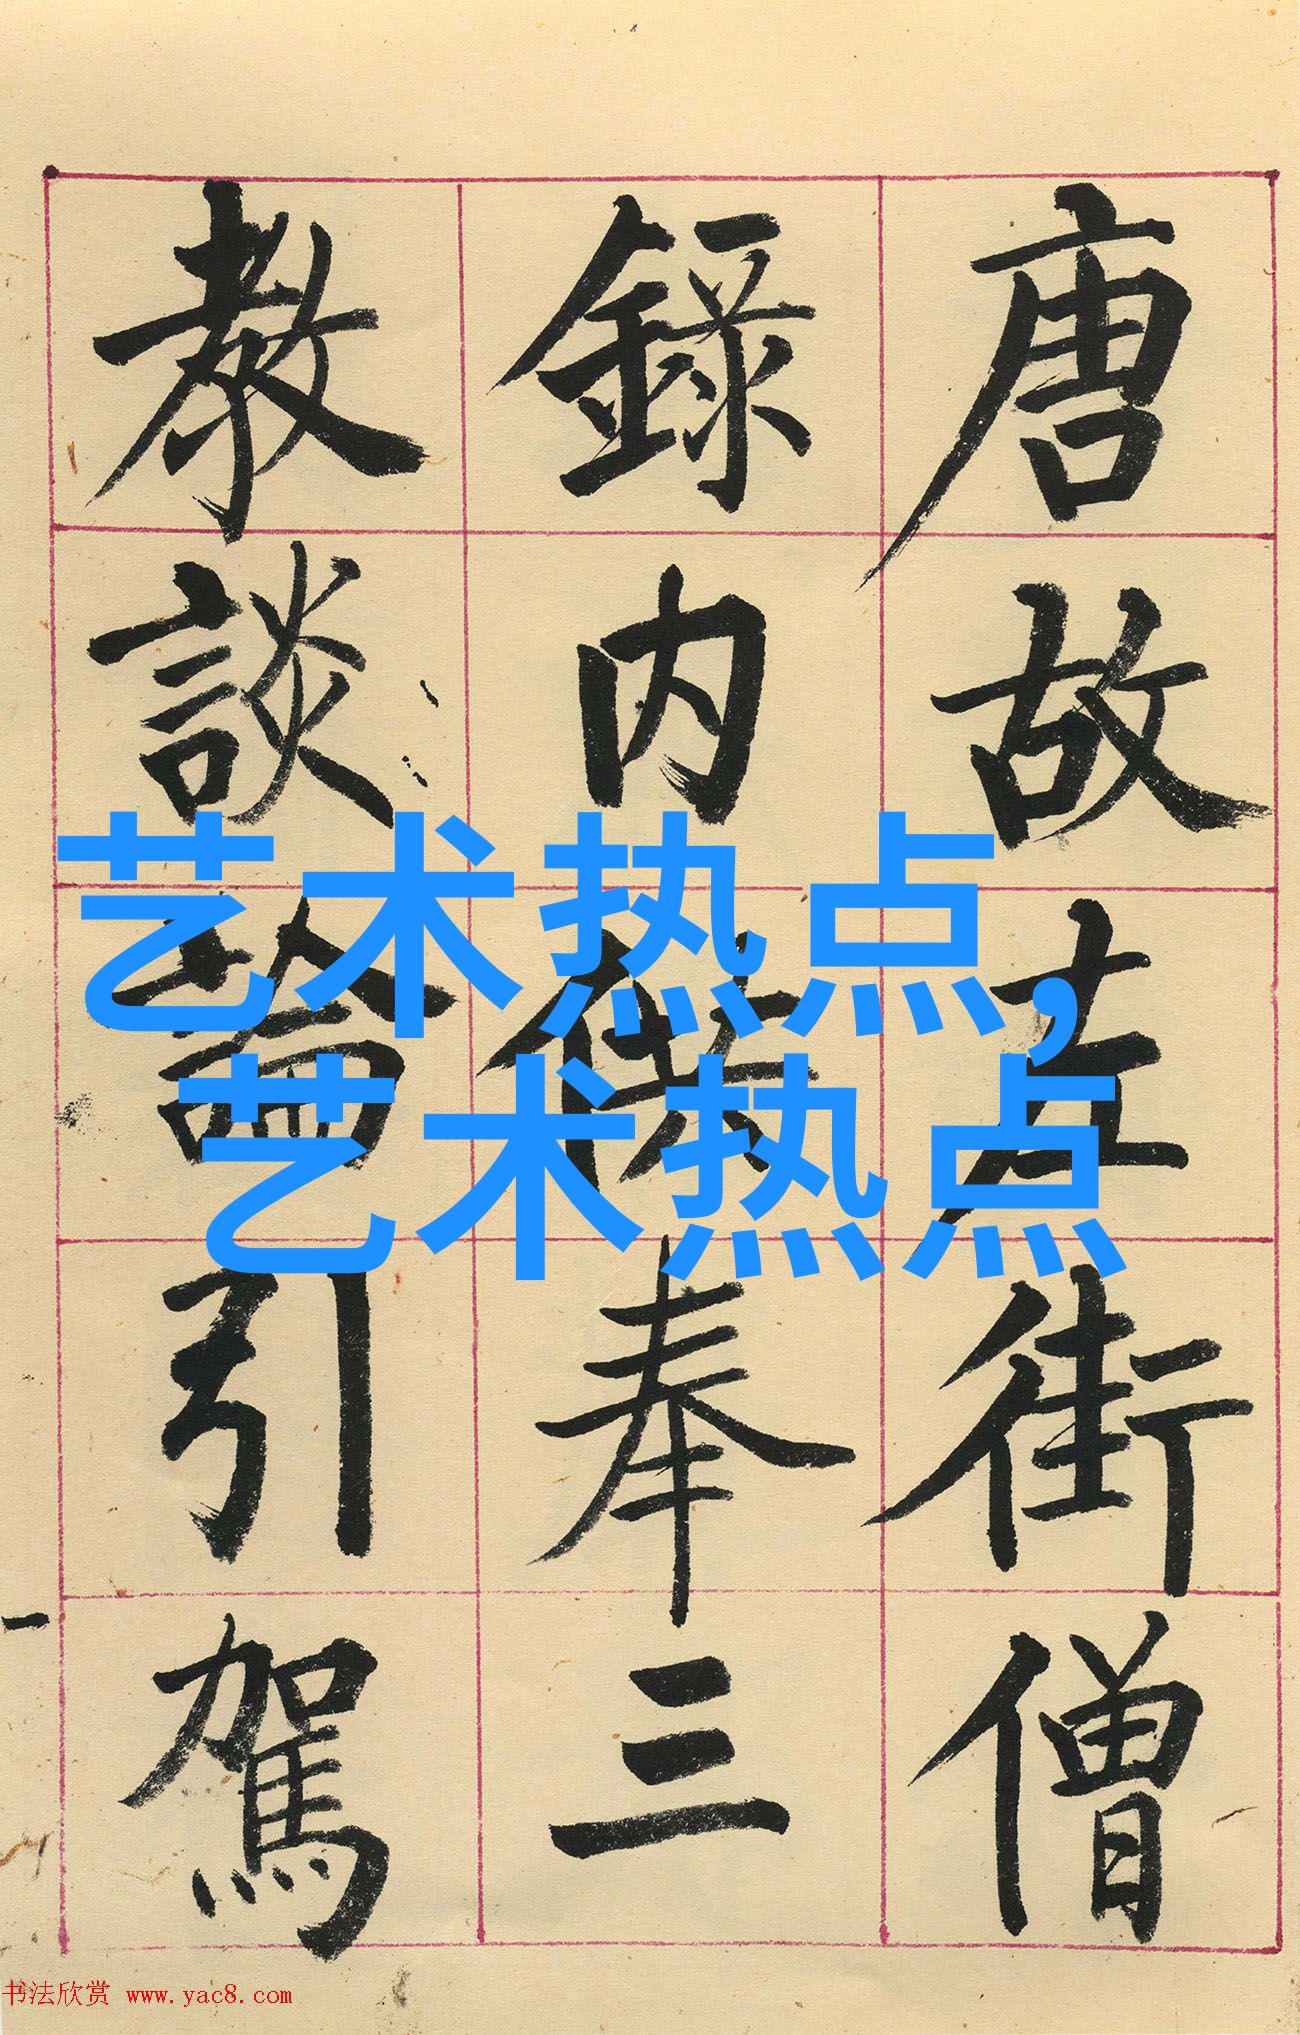 唐故左街僧
錄内供奉三
教談論引駕
艺术热点,
艺术热点
书法欣赏 www.yac8.com